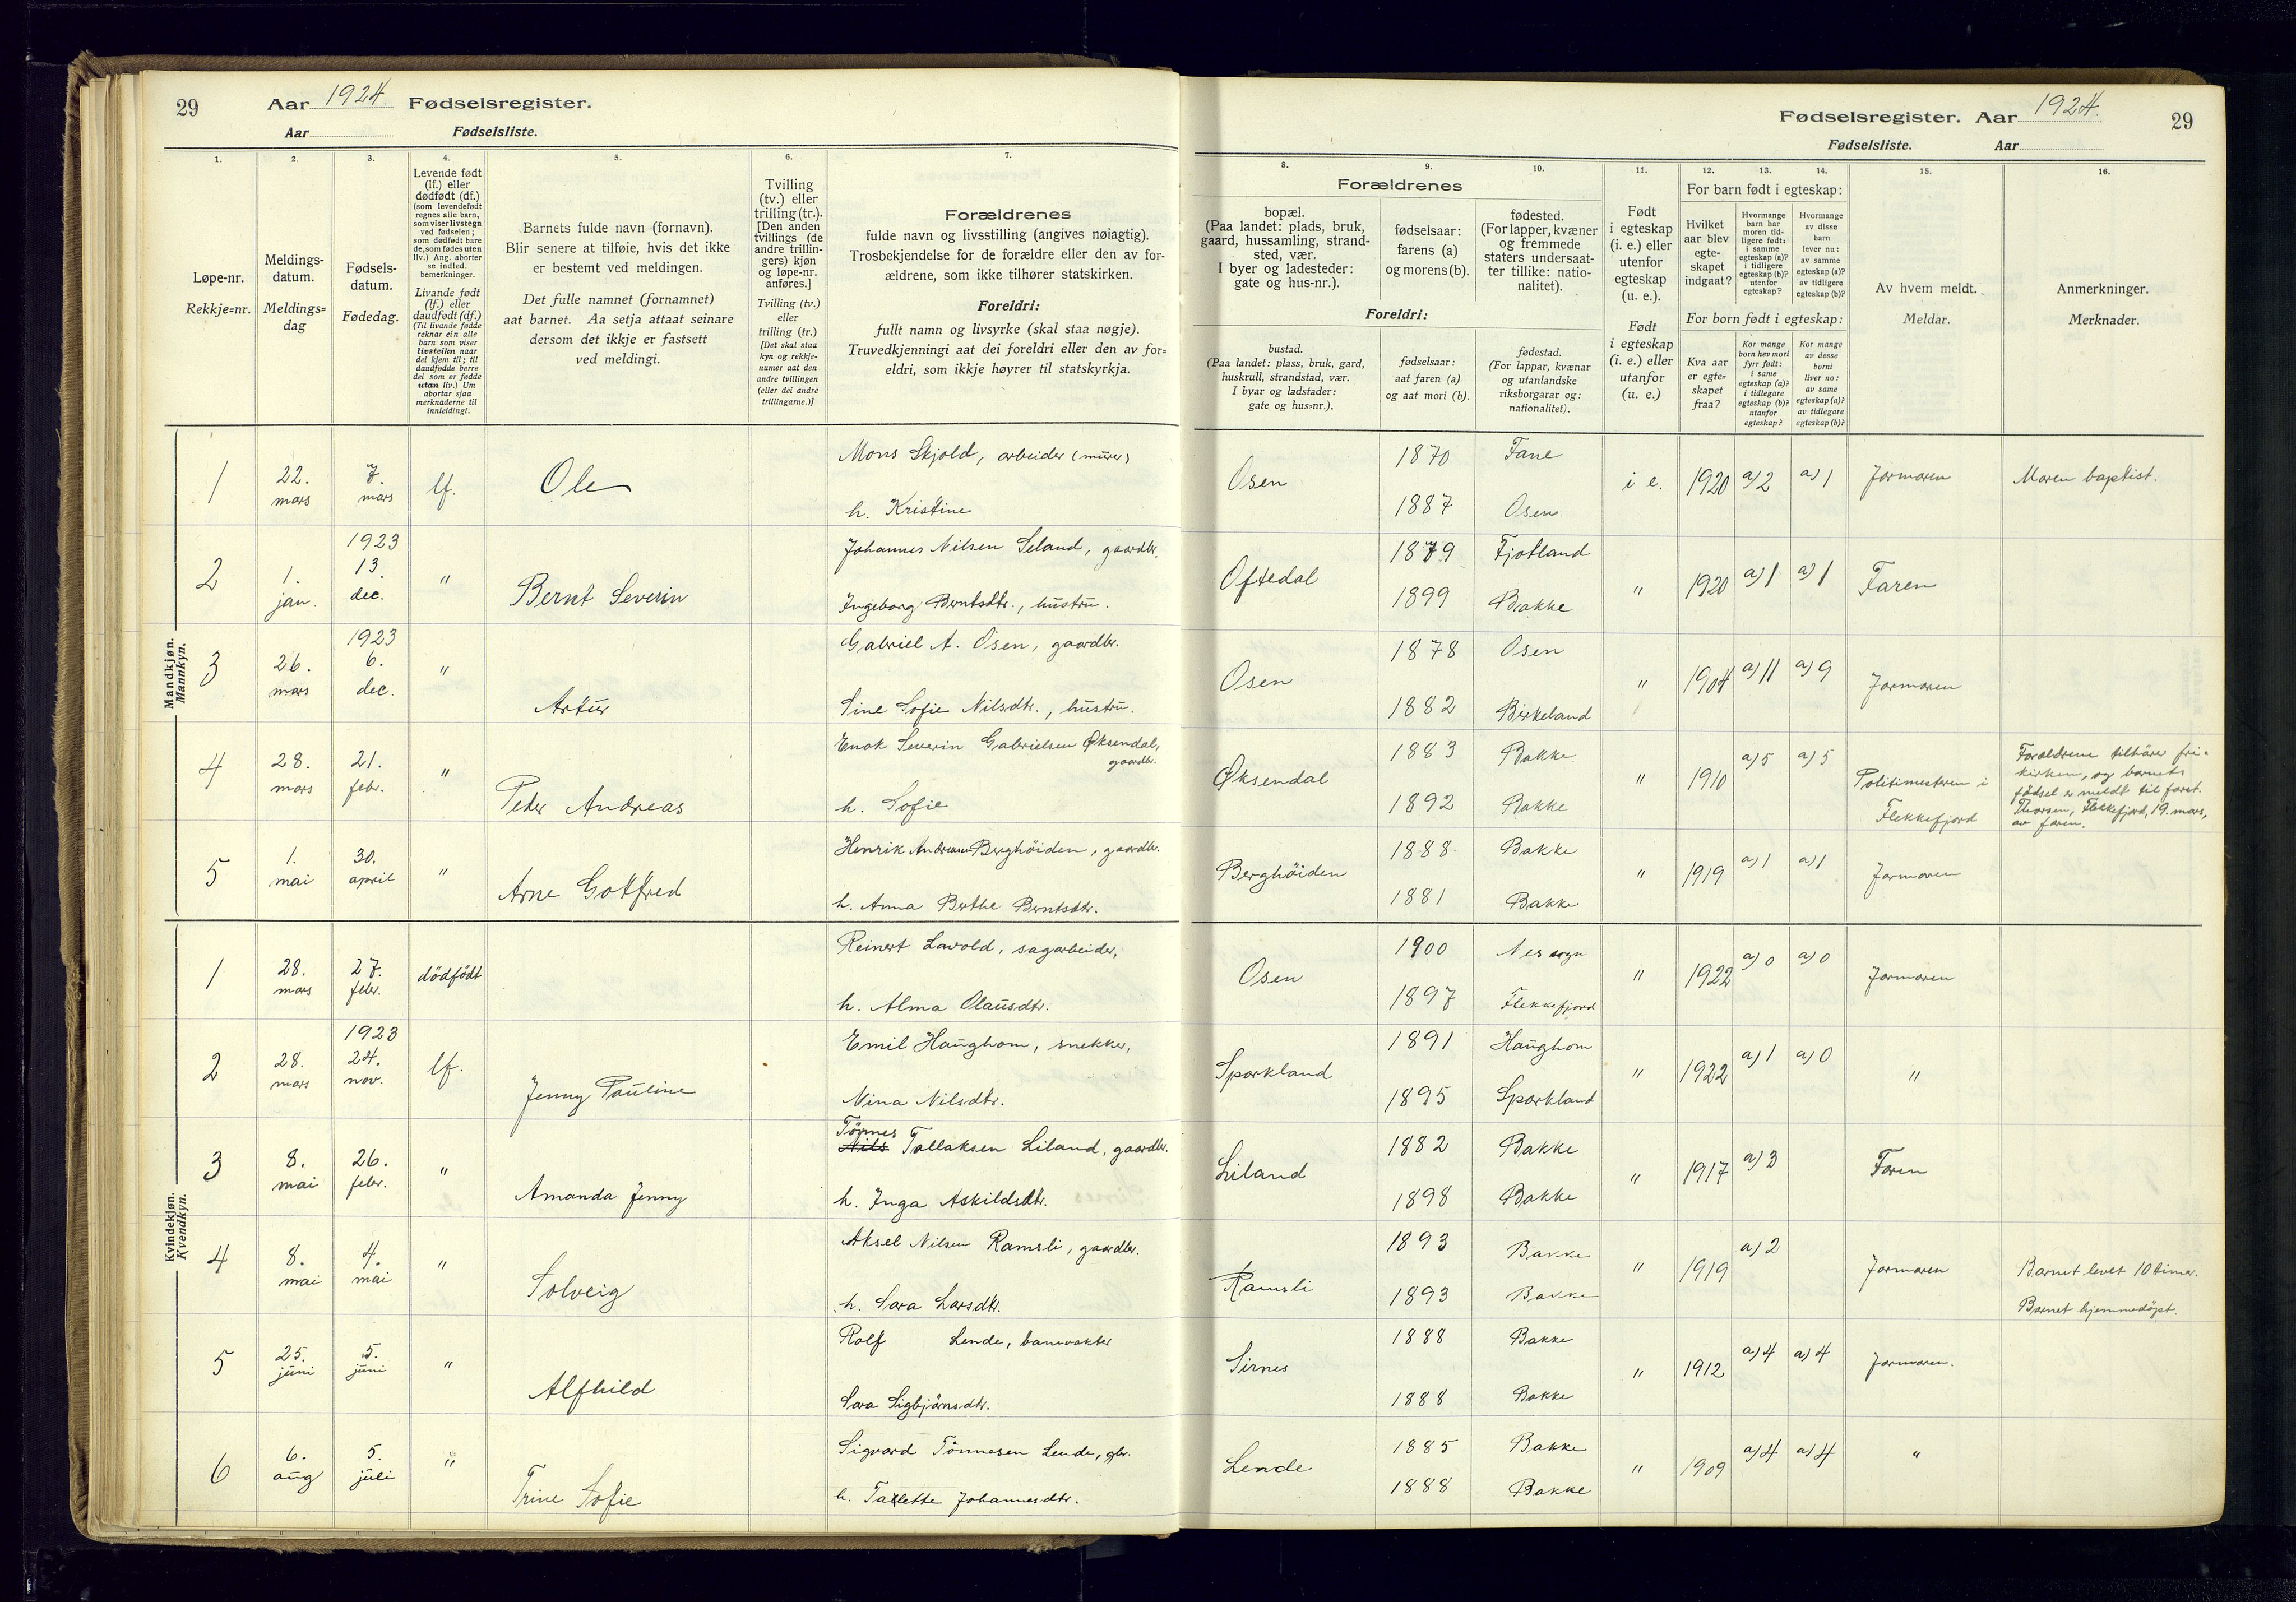 29 Aar 1924. Fødselsregister.
Aar Fødselsliste.
Fødselsregister. Aar 1924. 29
Fødselsliste. Aar
1. 2. 3. 4. 5. 6. 7.
Løpe-nr.
Rekkje=nr.
Meldings-
datum.
Meldings=
dag
Fødsels-
datum.
Fødedag.
Levende født
(lf.) eller
dødfødt (df.)
(som levendefødt
regnes alle barn,
som viser livstegn
ved fødselen;
som dødfødt bare
de, som fødes uten
liv.) Ang. aborter
se indled.
bemerkninger.
Livande født
(lf.) eller
daudfødt (df.)
(Til livande fødde
reknar ein alle
barn som viser
livsteikn naar
dei kjem til; til
daudfødde berre
dei som er fødde
utan liv.) Um
abortar sjaa
merknaderne til
innleidingi.
Barnets fulde navn (fornavn).
Blir senere at tilføie, hvis det ikke
er bestemt ved meldingen.
Det fulle namnet (fornamnet)
aat barnet. Aa setja attaat seinare
dersom det ikkje er fastsett
ved meldingi.
Tvilling
(tv.) eller
trilling (tr.).
[Den anden
tvillings (de
andre trillin-
gers) kjøn
og løpe-nr.
anføres.]
Tvilling (tv.)
eller
trilling (tr.)
[Det skal staa
kyn og rekkje-
numer aat den
andre tvillingen
(eller dei andre
trillingarne.)]
Forældrenes
fulde navn og livsstilling (angives nøiagtig).
Trosbekjendelse for de forældre eller den av for-
ældrene, som ikke tilhører statskirken.
Foreldri:
fullt namn og livsyrke (skal staa nøgje).
Truvedkjenningi aat dei foreldri eller den av for=
eldri, som ikkje høyrer til statskyrkja.
8. 9. 10. 11. 12. 13. 14. 15. 16.
Forældrenes
bopæl.
(Paa landet: plads, bruk,
gaard, hussamling, strand-
sted, vær.
I byer og ladesteder:
gate og hus-nr.).
fødselsaar:
farens (a)
og morens (b).
fødested.
(For lapper, kvæner
og fremmede
staters undersaat-
ter tillike: natio-
nalitet).
Foreldri:
bustad.
(Paa landet: plass, bruk, gard,
huskrull, strandstad, vær.
I byar og ladstader:
gate og hus=nr.).
fødselsaar:
aat faren (a)
og aat mori (b).
fødestad.
(For lappar, kvænar
og utanlandske
riksborgarar og:
nationalitet).
Født
i egteskap
(i. e.) eller
utenfor
egteskap
(u. e.).
Født
i egteskap
(i. e.) eller
utanfor
(u. e.)
For barn født i egteskap:
Hvilket
aar blev
egte-
skapet
indgaat?
Hvormange
barn har
moren tid-
ligere født:
i samme
egteskap (a)?
i tidligere
egteskap (b)?
utenfor
egteskap?
Hvormange
av disse
barn
lever nu:
av samme
egteskap (a)?
av tidligere
egteskap (b)?
For born født i egteskap:
Kva aar
er egte-
skapet
fraa?
Kor mange
born hev mori
fyrr født:
i same
egteskap (a)?
i tidlegare
egteskap (b)?
utanfor
egteskap?
Kor mange
av desse
borni
liver no:
av same
egteskap (a)?
av tidlegare
egteskap (b)?
Av hvem meldt.
Meldar.
Anmerkninger.
Merknader.
Mandkjøn.
Mannkyn.
1 22. mars 7. mars lf. Ole
Mons Skjold, arbeider (murer)
h. Kristine
Osen 1870 Fane i e. 1920 a) 2 a) 1 Jormoren Moren baptist.
1887 Osen
2 1. jan. 1923 13. dec. " Bernt Severin
Johannes Nilsen Seland, gaardbr.
Ingeborg Berntsdtr., hustru.
Oftedal 1879 Fjotland " 1920 a) 1 a) 1 Faren
1899 Bakke
3 26. mars 1923 6. dec. " Artur
Gabriel A. Osen, gaardbr.
Sine Sofie Nilsdtr., hustru.
Osen 1878 Osen " 1904 a) 11 a) 9 Jormoren
1882 Birkeland
4 28. mars 21. febr. " Peder Andreas
Enok Severin Gabrielsen Øksendal,
gaardbr.
h. Sofie
Øksendal 1883 Bakke " 1910 a) 5 a) 5 Politimesteren i
Flekkefjord
1892 Bakke
Forældrene tilhører fri-
kirken, og barnets
fødsel er meldt til forst.
Thorsen, Flekkefjord, 19. mars,
av faren.
5 1. mai 30. april " Arne Gotfred
Henrik Andreasen Berghöiden, gaardbr.
h. Anna Berthe Berntsdtr.
Berghöiden 1888 Bakke " 1919 a) 1 a) 1 Jormoren
1881 Bakke
Kvindekjøn.
Kvendkyn.
1 28. mars 27. febr. dödfödt
Reinert Lavold, sagarbeider,
h. Alma Olausdtr.
Osen 1900 Nes sogn " 1922 a) 0 a) 0 Jormoren
1897 Flekkefjord
2 28. mars 1923 24. nov. lf. Jenny Pauline
Emil Haughom, snekker,
Nina Nilsdtr.
Sparkland 1891 Haughom " 1922 a) 1 a) 0 "
1895 Sparkland
3 8. mai 26. febr. " Amanda Jenny
Tönnes
Nils Tallaksen Liland, gaardbr.
h. Inga Askildsdtr.
Liland 1882 Bakke " 1917 a) 3 Faren
1898 Bakke
4 8. mai 4. mai " Solveig
Aksel Nilsen Ramsli, gaardbr.
h. Sara Larsdtr.
Ramsli 1893 Bakke " 1919 a) 2 Jormoren Barnet levet 10 timer.
1893 Bakke Barnet hjemmedøpt.
5 25. juni 5. juni " Alfhild
Rolf Lende, banevokter
Sara Sigbjörnsdtr.
Sirnes 1888 Bakke " 1912 a) 4 a) 4 Jormoren.
1888 Bakke
6 6. aug 5. juli " Trine Sofie
Sigvard Tönnesen Lende, gbr.
h. Tallette Johannesdtr.
Lende 1885 Bakke " 1909 a) 4 a) 4 "
1888 Bakke